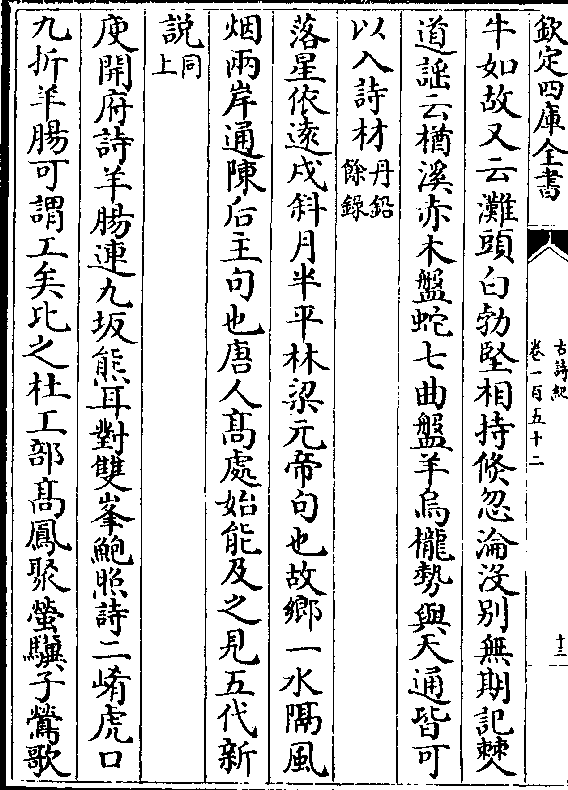 欽定四庫全書
古詩紀
卷一百五十二
十三
牛如故又云灘頭白勃堅相持倏忽淪沒別無期記㷊人
道謡云楢溪赤木盤蛇七曲盤羊烏櫳勢與天通皆可
以入詩材丹鉛餘録
落星依逺戍斜月半平林梁元帝句也故鄉一水隔風
烟兩岸通陳后主句也唐人髙處始能及之見五代新
説同上
庾開府詩羊腸連九坂熊耳對雙峯鮑照詩二崤虎口
九折羊腸可謂工矣比之杜工部髙鳳聚螢驥子鶯歌